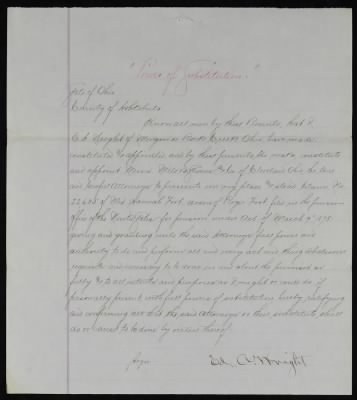 "Power of Substitution"
State of Ohio
County of Ashtabula
Know all men by these Presents, that I
Wright of Morgan or Rock Creek Ohio have made
constituted & appointed and by these presents do make constitute
and appoint Messrs & Co of Cleveland Ohio
and lawful Attorneys to prosecute in my place & stead Claim No
of Mrs Hannah Fort widow of Roger Fort filed in the pension
office of the United States for pension under Act of March 9th 1878
giving and granting unto the said Attorneys full power and
authority to do and perform all and every act and thing whatsoever
requisite and necessary to be done in and about the premises as
fully & to all intents and purposes as I might or could do if
personally present with full power of substitution hereby ratifying
and confirming all that the said Attorneys or their substitute shall
do or cause to be done by virtue hereof
Wright